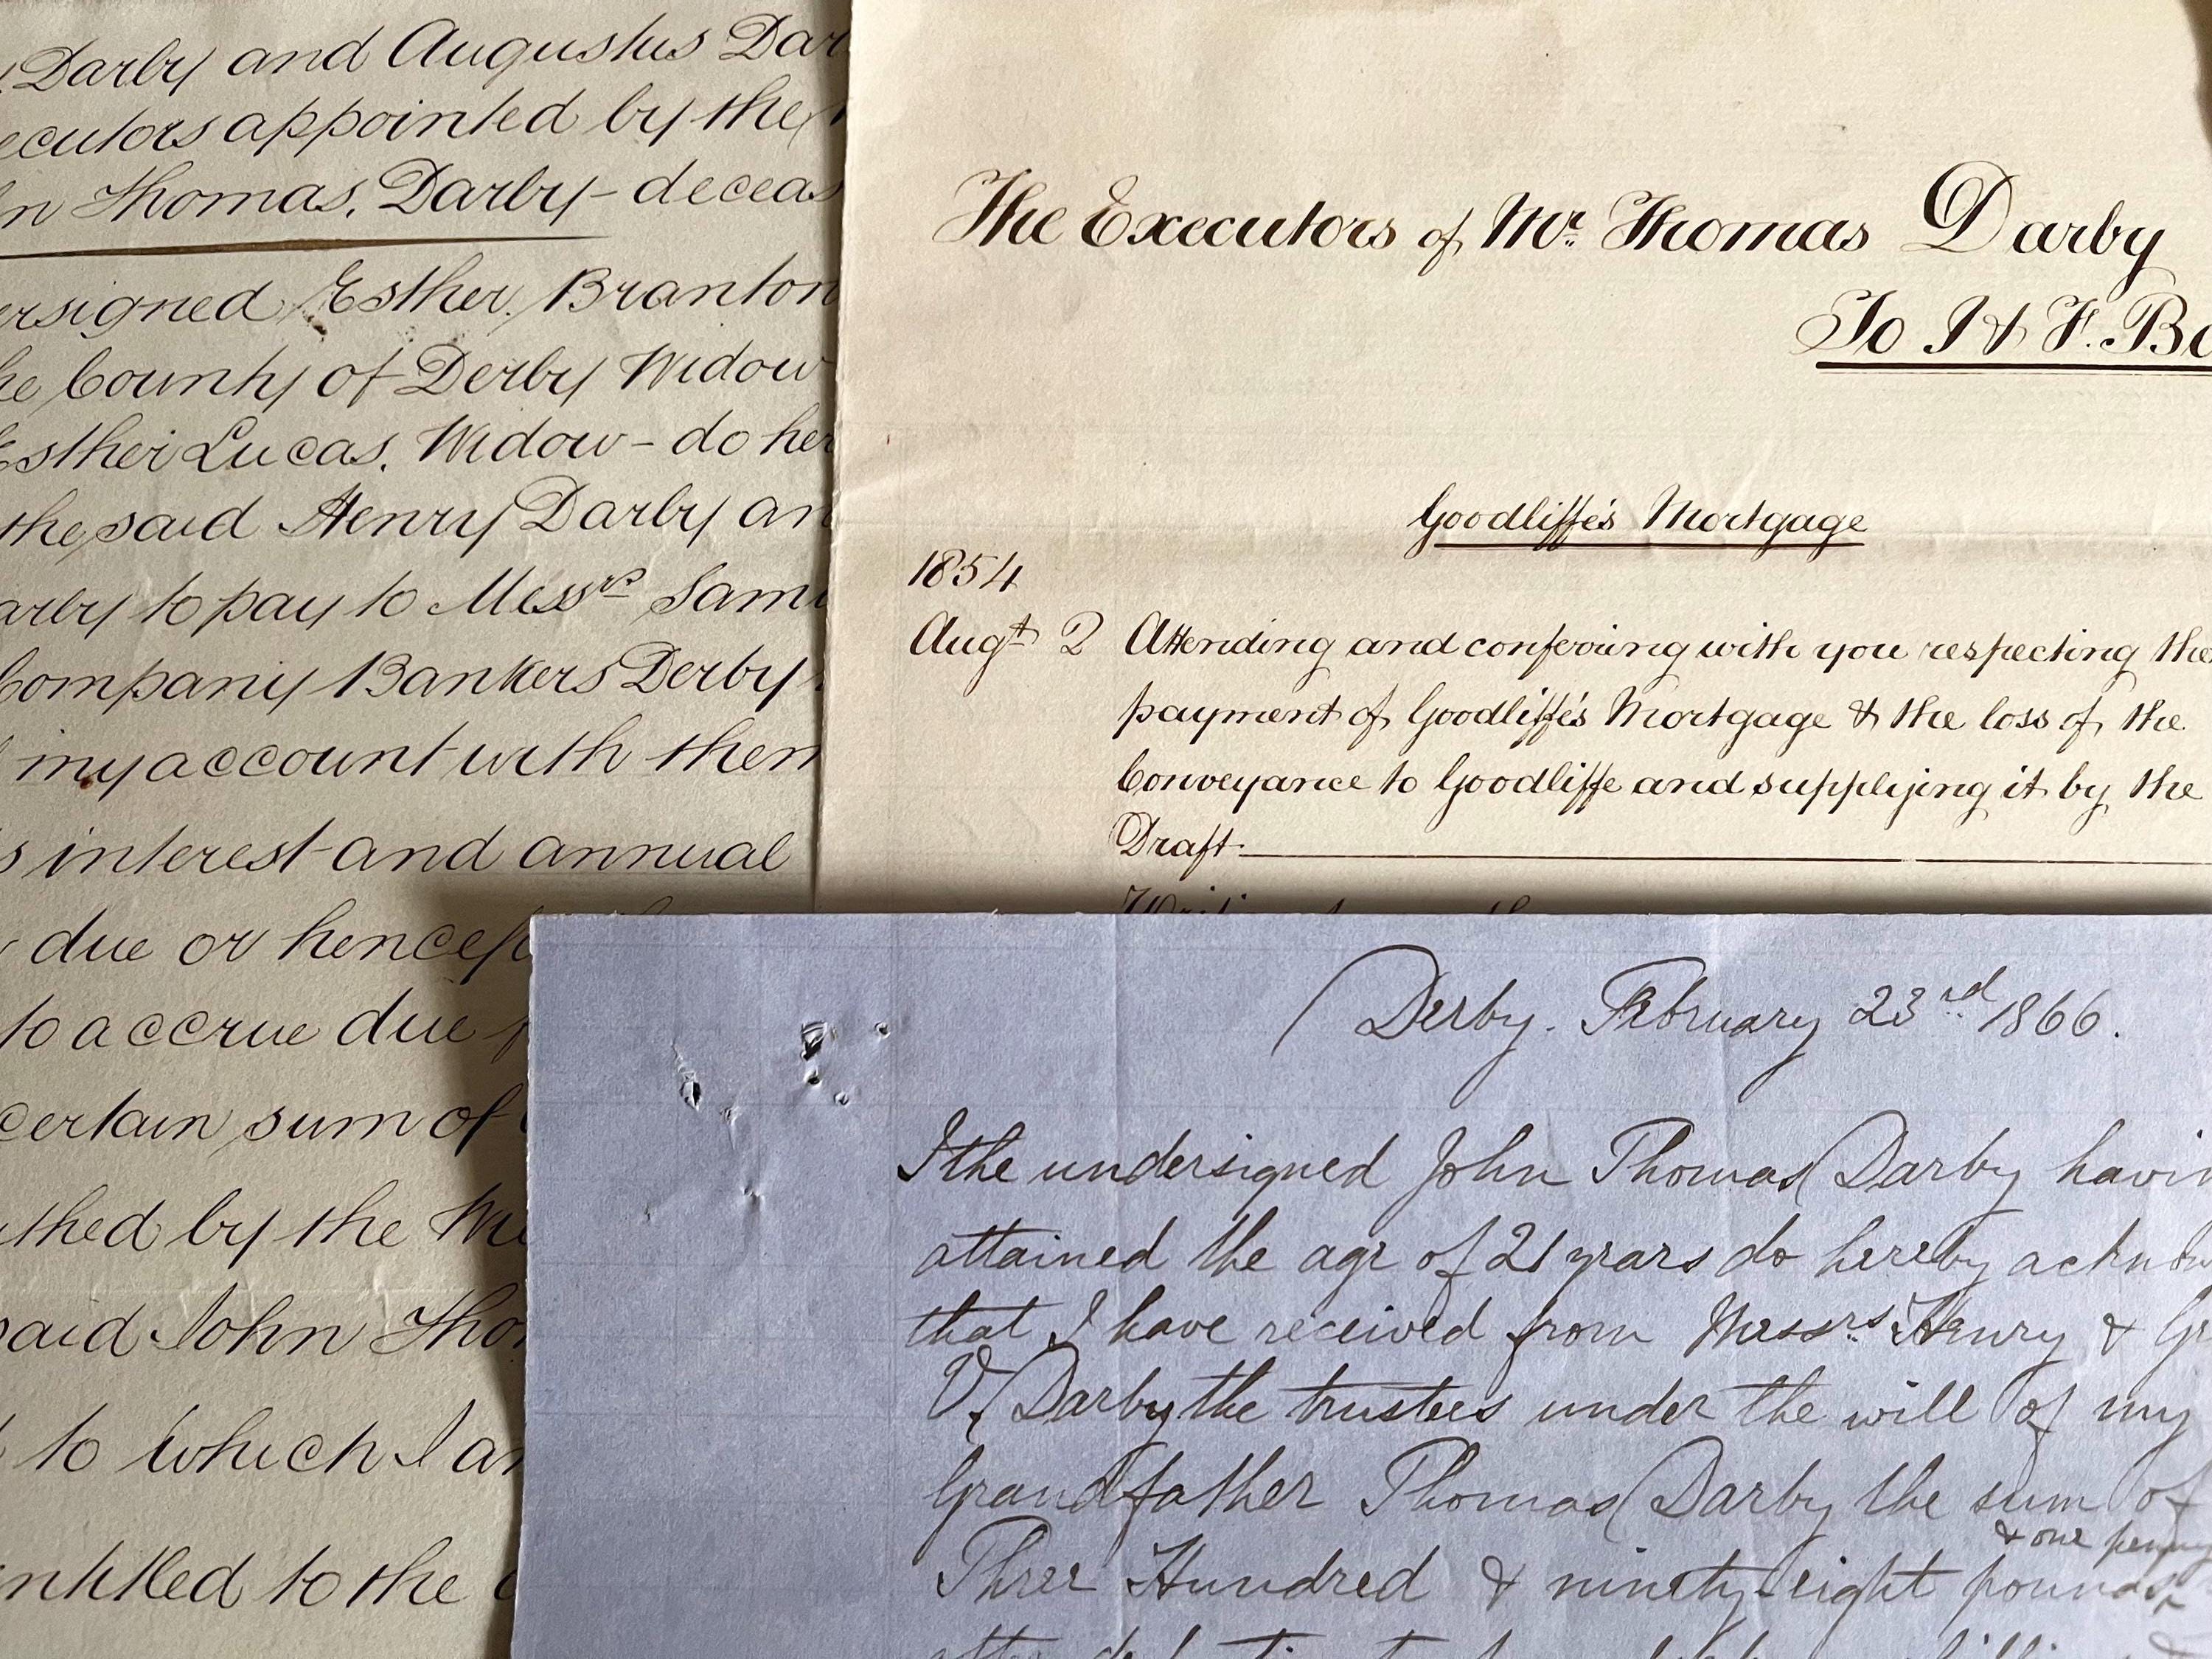 Darby and Augustus Dar
ecutors appointed by the
n Thomas. Darby - deceas
ersigned Esther Branton
he County of Derby Widow
Esther Lucas. Widow - do her
the said Henry Darby an
arby to pay to Messrs Sam
Company Bankers Derby
my account with them
s interest and annual
due or hencef
to accrue due
certain sum of
athed by the Wi
said John Tho
to which I am
ntitled to the
The Executors of Mr. Thomas Darby
To J & F. B
Goodliffe's Mortgage
1854
Augt 2 Attending and conferring with you respecting the
payment of Goodliffe's Mortgage & the loss of the
Conveyance to Goodliffe and supplying it by the
Draft
Derby. February 23rd 1866.
I the undersigned John Thomas Darby havin
attained the age of 21 years do hereby acknow
that I have received from Messrs. Henry & G
V. Darby the trustees under the will of my
Grandfather Thomas Darby the sum of
& one penny
Three Hundred & ninety-eight pounds